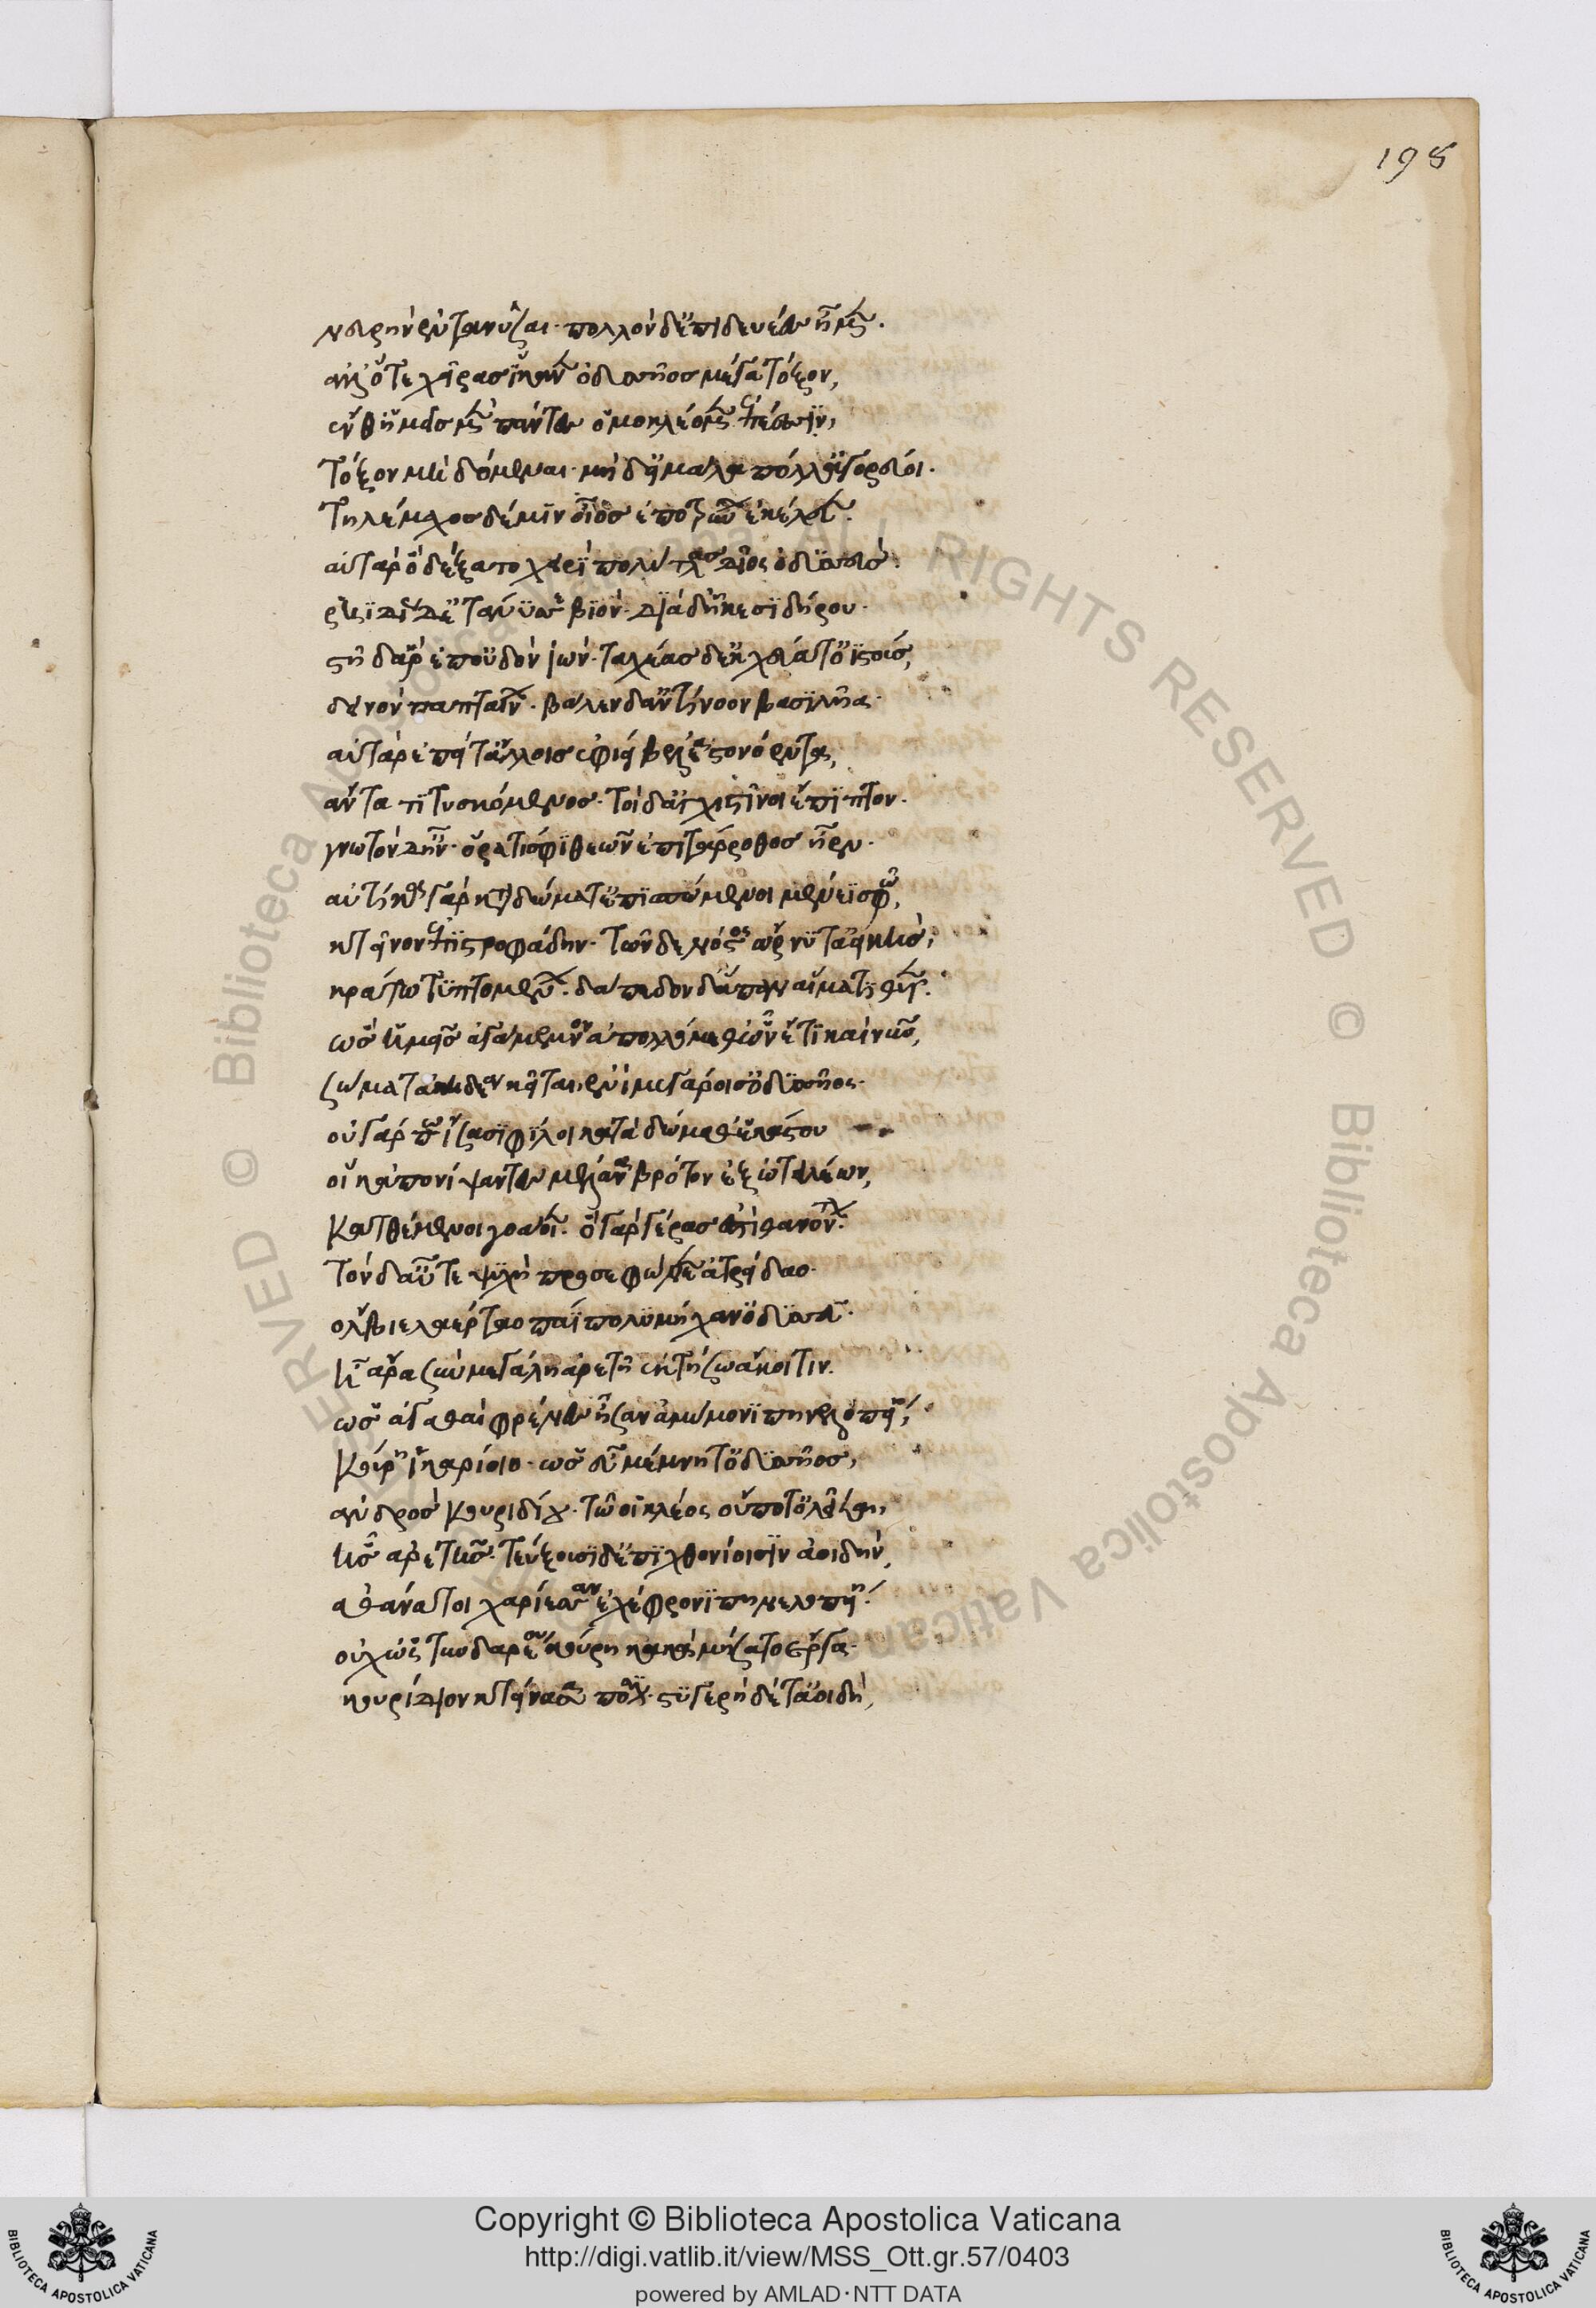 198
νευρὴν ἐντανύσαι· πολλὸν δ' ἐπιδευέες ἦμεν.
ἀλλ' ὅτε χεῖρας ἵκανεν ὀδυσσῆος μέγα τόξον,
ἔνθ' ἡμεῖς μὲν πάντες ὁμοκλέομεν ἐπέεσσιν,
τόξον μὴ δόμεναι· μηδ' εἰ μάλα πόλλ' ἀγορεύοι.
τηλέμαχος δέ μιν οἶος ἐποτρύνων ἐκέλευσεν.
αὐτὰρ ὃ δέξατο χειρὶ πολύτλας δῖος ὀδυσσεύς·
ῥηιδίως δ' ἐτάνυσσε βιὸν· διὰ δ' ἧκε σιδήρου·
στῆ δ' ἄρ' ἐπ' οὐδὸν ἰών· ταχέας δ' ἐκχεύατ' ὀϊστούς,
δεινὸν παπταίνων. βάλε δ' ἀντίνοον βασιλῆα·
αὐτὰρ ἔπειτ' ἄλλοις ἐφίει βέλεα στονόεντα,
ἄντα τιτυσκόμενος· τοὶ δ' ἀγχιστῖνοι ἔπιπτον·
γνωτὸν δ' ἦν· ὅ ῥά τίς σφι θεῶν ἐπιτάρροθος ἦεν·
αὐτίκα γὰρ κατὰ δώματ' ἐπισπόμενοι μένεϊ σφῷ,
κτεῖνον ἐπιστροφάδην· τῶν δὲ στόνος ὤρνυτ' ἀεικής,
κράτων τυπτομένων· δάπεδον δ' ἅπαν αἵματι θῦεν.
ὣς ἡμεῖς ἀγάμεμνον ἀπολλόμεθ' ὧν ἔτι καὶ νῦν,
σώματ' ἀκηδέα κεῖται ἐνὶ μεγάροις ὀδυσσῆος·
οὐ γάρ πω ἴσασι φίλοι κατὰ δώμαθ' ἑκάστου
οἵ κ' ἀπονίψαντες μέλανα βρότον ἐξ ὠτειλέων,
κατθέμενοι γοάοιεν· ὃ γὰρ γέρας ἐστὶ θανόντων.
τὸν δ' αὖτε ψυχὴ προσεφώνεεν ἀτρείδαο·
ὄλβιε λαέρταο πάϊ πολυμήχαν' ὀδυσσεῦ·
ἦ ἄρα σὺν μεγάλῃ ἀρετῇ ἐκτήσω ἄκοιτιν.
ὡς ἀγαθαὶ φρένες ἦσαν ἀμύμονι πηνελοπείῃ,
κούρῃ ἰκαρίου· ὡς εὖ μέμνητ' ὀδυσσῆος,
ἀνδρὸς κουριδίου· τῷ οἱ κλέος οὔποτ' ὀλεῖται,
ἧς ἀρετῆς· τεύξουσι δ' ἐπιχθονίοισιν ἀοιδὴν,
ἀθάνατοι χαρίεσσαν ἐχέφρονι πηνελοπείῃ·
οὐχ ὡς τυνδαρέου κούρη κακὰ μήσατο ἔργα·
κουρίδιον κτείνασα πόσιν· στυγερὴ δέ τ' ἀοιδὴ,
© Biblioteca Apostolica Vaticana ALL RIGHTS RESERVED
Copyright © Biblioteca Apostolica Vaticana
http://digi.vatlib.it/view/MSS_Ott.gr.57/0403
powered by AMLAD·NTT DATA
BIBLIOTECA APOSTOLICA VATICANA
BIBLIOTECA APOSTOLICA VATICANA